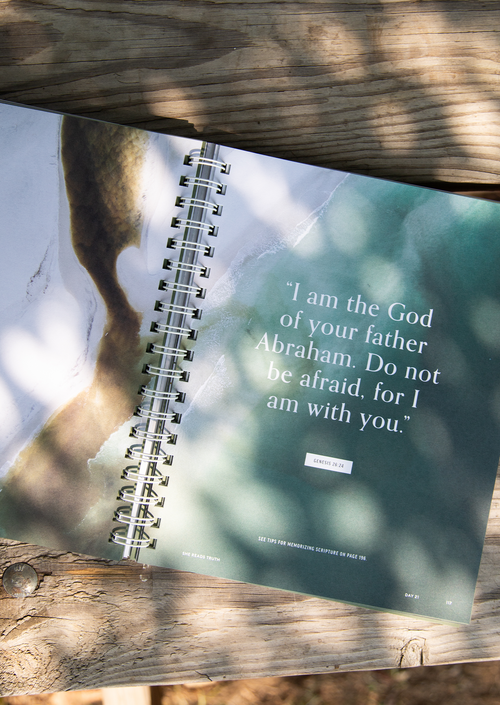 “I am the God
of your father
Abraham. Do not
be afraid, for I
am with you.”
GENESIS 26:24
SEE TIPS FOR MEMORIZING SCRIPTURE ON PAGE 196
SHE READS TRUTH
DAY 21